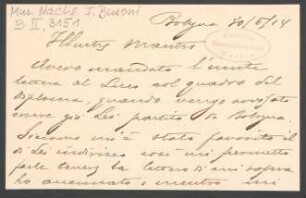 Mus. Nachl. F. Busoni
B II, 3151
Bologna 20/5/14
Illustre Maestro
Avevo mandato l'unita
lettera al Liceo sul quadro del
diploma, quando vengo avvisato
essere già Lei partito da Bologna.
Siccome mi è stato favorito il
di Lei indirizzo così mi permetto
farle tenere la lettera di cui sopra
ho accennato, mentre mi